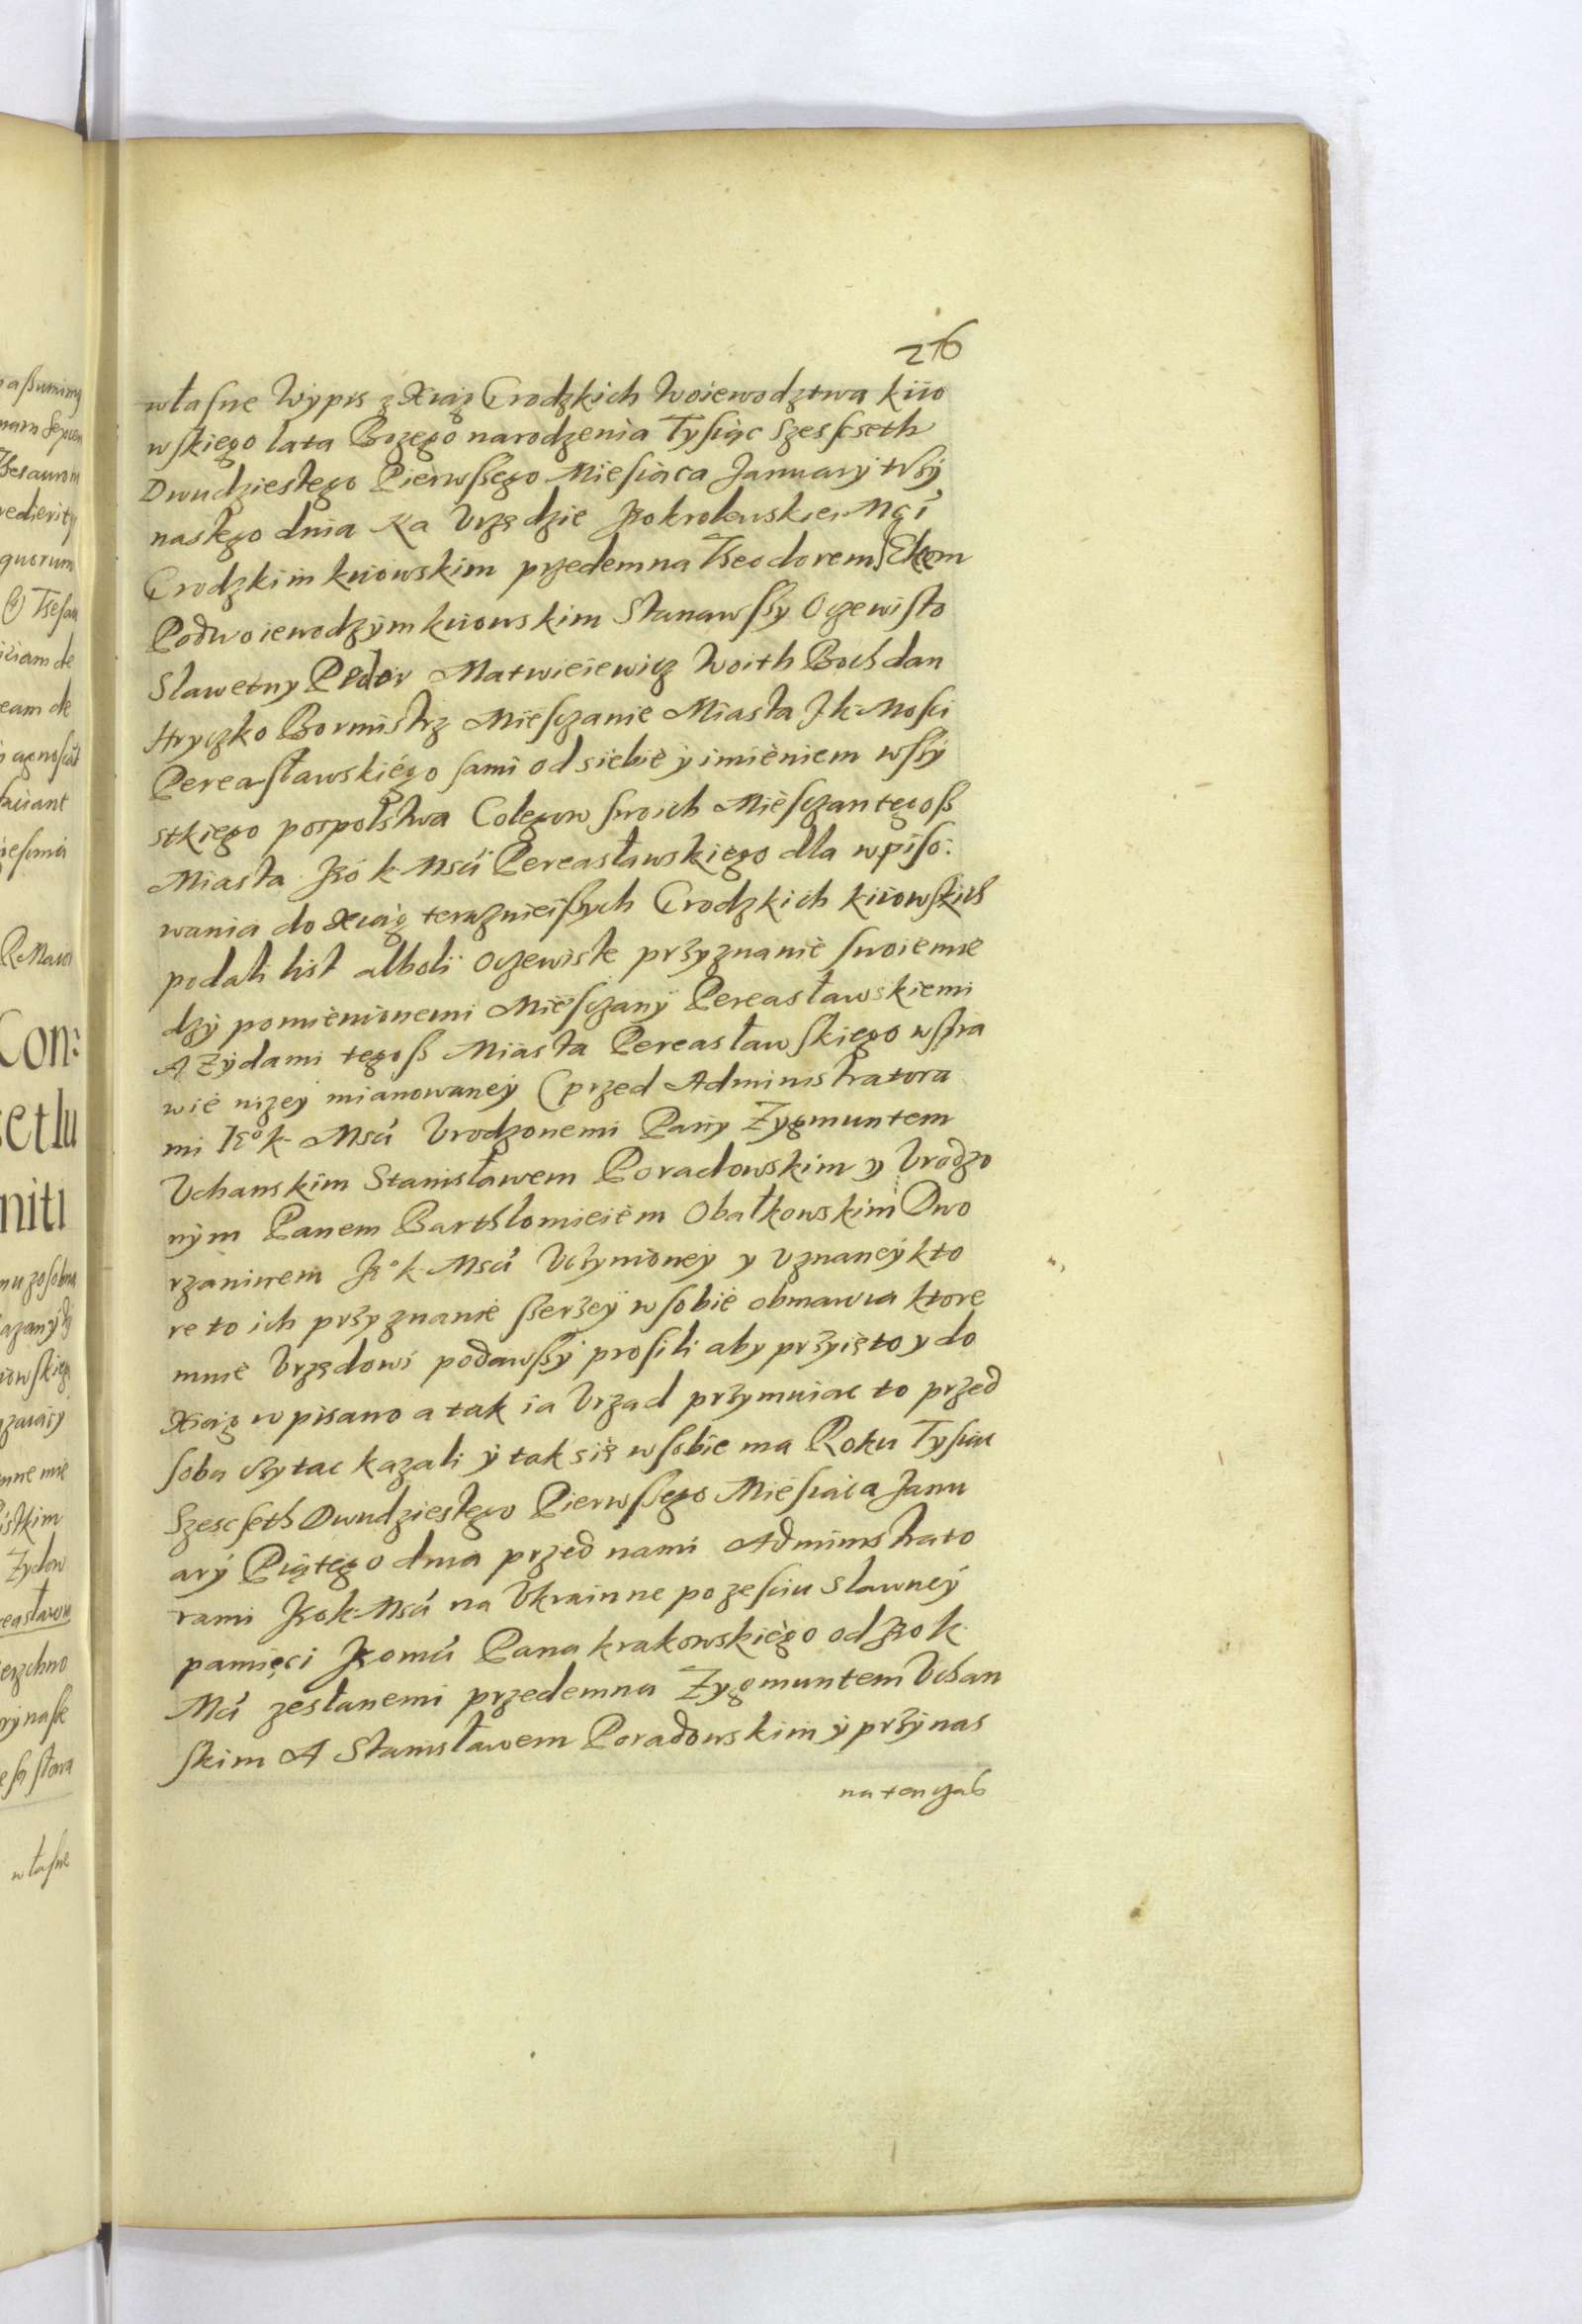 216
własne Wÿpis z Xiąg Grodzkich Woiewodztwa kiio
wskiego lata Bozego narodzenia Tysiąc Szescseth
Dwudziestego Pierwssego Miesiąca January trzÿ
nastego dnia Na Vrzędzie Jego krolewskiei Mći
Grodzkim kiiowskim przedemna Theodorem
Podwoiewodzÿm kiiowskim Stanawssy Oczewisto
Sławetny Pedor Matwieiewicz Woith Bochdan
Hryczko Bormistrz Miesczanie Miasta J k Mosci
Pereasławskiego sami od siebie ÿ imieniem wssÿ
stkiego pospolstwa Colegow swoich Miesczan tegoss
Miasta Jeo k Msći Pereasławskiego dla wpiso:
wania do Xiąg teraznieissych Grodzkich kiiowskich
podali list alboli oczewiste przyznanie swoie mie
dzÿ pomienionemi Miesczanÿ Pereasławskiemi
A Zÿdami tegoss Miasta Pereasławskiego wspra
wie nizeÿ mianowaneÿ przed Administratora
mi Jeo k Msći Vrodzonemi Panÿ Zygmuntem
Uchanskim Stanisławem Poradowskim y Vrodzo
nÿm Panem Barthlomieiem Obałkowskim Dwo
rzaninem Jeo k Msći Vczynioneÿ y vznaneÿ kto
re to ich przyznanie sserzeÿ w sobie obmawia ktore
mnie Vrzędowi podawssÿ prosili aby przyięto y do
Xiąg wpisano a tak ia Vrzad przymuiac to przed
soba czytac kazali ÿ tak się w sobie ma Roku Tysiac
Szescseth Dwudziestego Pierwssego Miesiaca Janu
arÿ Piątego dnia przed nami Administrato
rami Jeo k Msći na Vkrainne po zesciu sławneÿ
pamięci Jeo mći Pana krakowskiego od Jeo k
Mći zesłanemi przedemna Zygmuntem Uchan
skim A Stanisławem Poradowskim ÿ przÿ nas
na ten czas